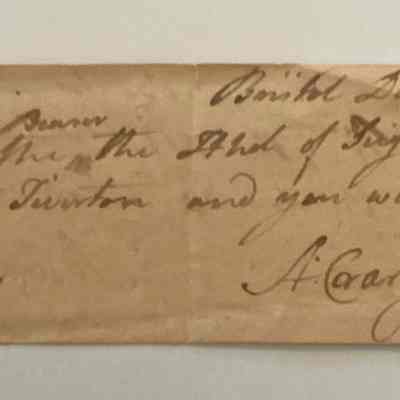 Bristol D
Bearer
the the Hhd of
Tiverton and you w
A. Crar